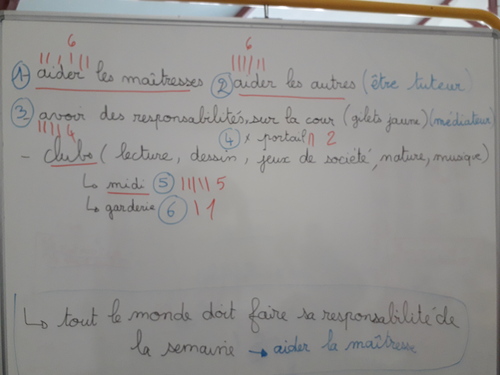 6 6
1 aider les maîtresses 2 aider les autres (être tuteur)
3 avoir des responsabilités sur la cour (gilets jaune) (médiateur)
4 4 x portail 2
- clubs (lecture, dessin, jeux de société, nature, musique)
↳ midi 5 5
↳ garderie 6 1
↳ tout le monde doit faire sa responsabilité de
la semaine → aider la maîtresse